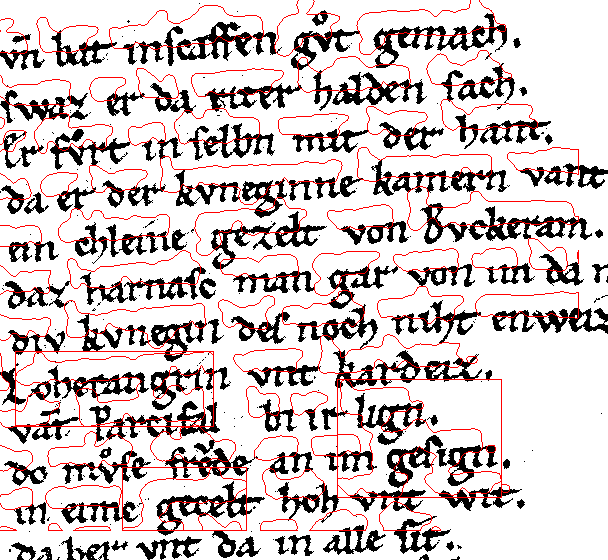 vñ bat inscaffen gůt gemach.
swaz er da riter halden sach.
Er fůrt in selbn mit der hant.
da er der kvneginne kamern vant
ein chleine gezelt von Bvckeram.
daz harnasc man gar von im da n
div kvnegin des noch niht enweiz
Loherangrin vnt kardeiz.
vāt Parcifal bi ir lign.
do mvͦse frevͦde an im gesign.
in eime gecelt hoh vnt wit.
da her vnt da in alle sit.